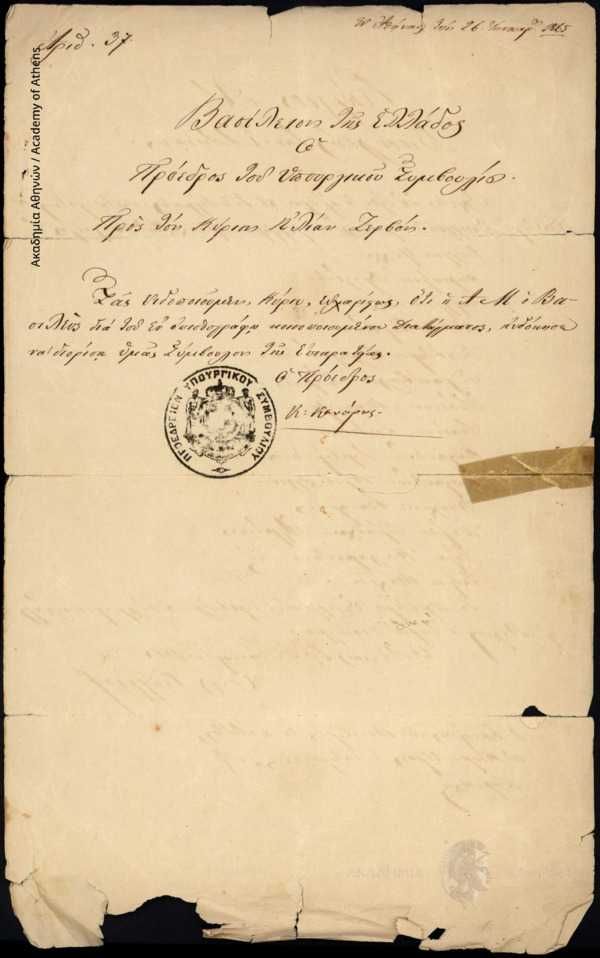 Ἀριθ. 37.
Ἐν Ἀθήναις τῇ 26 1865
Βασίλειον τῆς Ἑλλάδος
Ὁ
Πρόεδρος τοῦ Ὑπουργικοῦ Συμβουλίου.
Πρὸς τὸν Κύριον Ἠλίαν Ζερβόν.
Σᾶς εἰδοποιοῦμεν, Κύριε, εὐχαρίστως, ὅτι ἡ Α Μ ὁ Βα-
σιλεὺς διὰ τοῦ ἐν ἀντιγράφῳ κοινοποιουμένου Διατάγματος, εὐδόκησε
νὰ διορίσῃ ὑμᾶς Σύμβουλον τῆς Ἐπικρατείας.
Ὁ Πρόεδρος
Κ. Κανάρης
ΠΡΟΕΔΡΕΙΟΝ ΥΠΟΥΡΓΙΚΟΥ ΣΥΜΒΟΥΛΙΟΥ
Ακαδημία Αθηνών / Academy of Athens